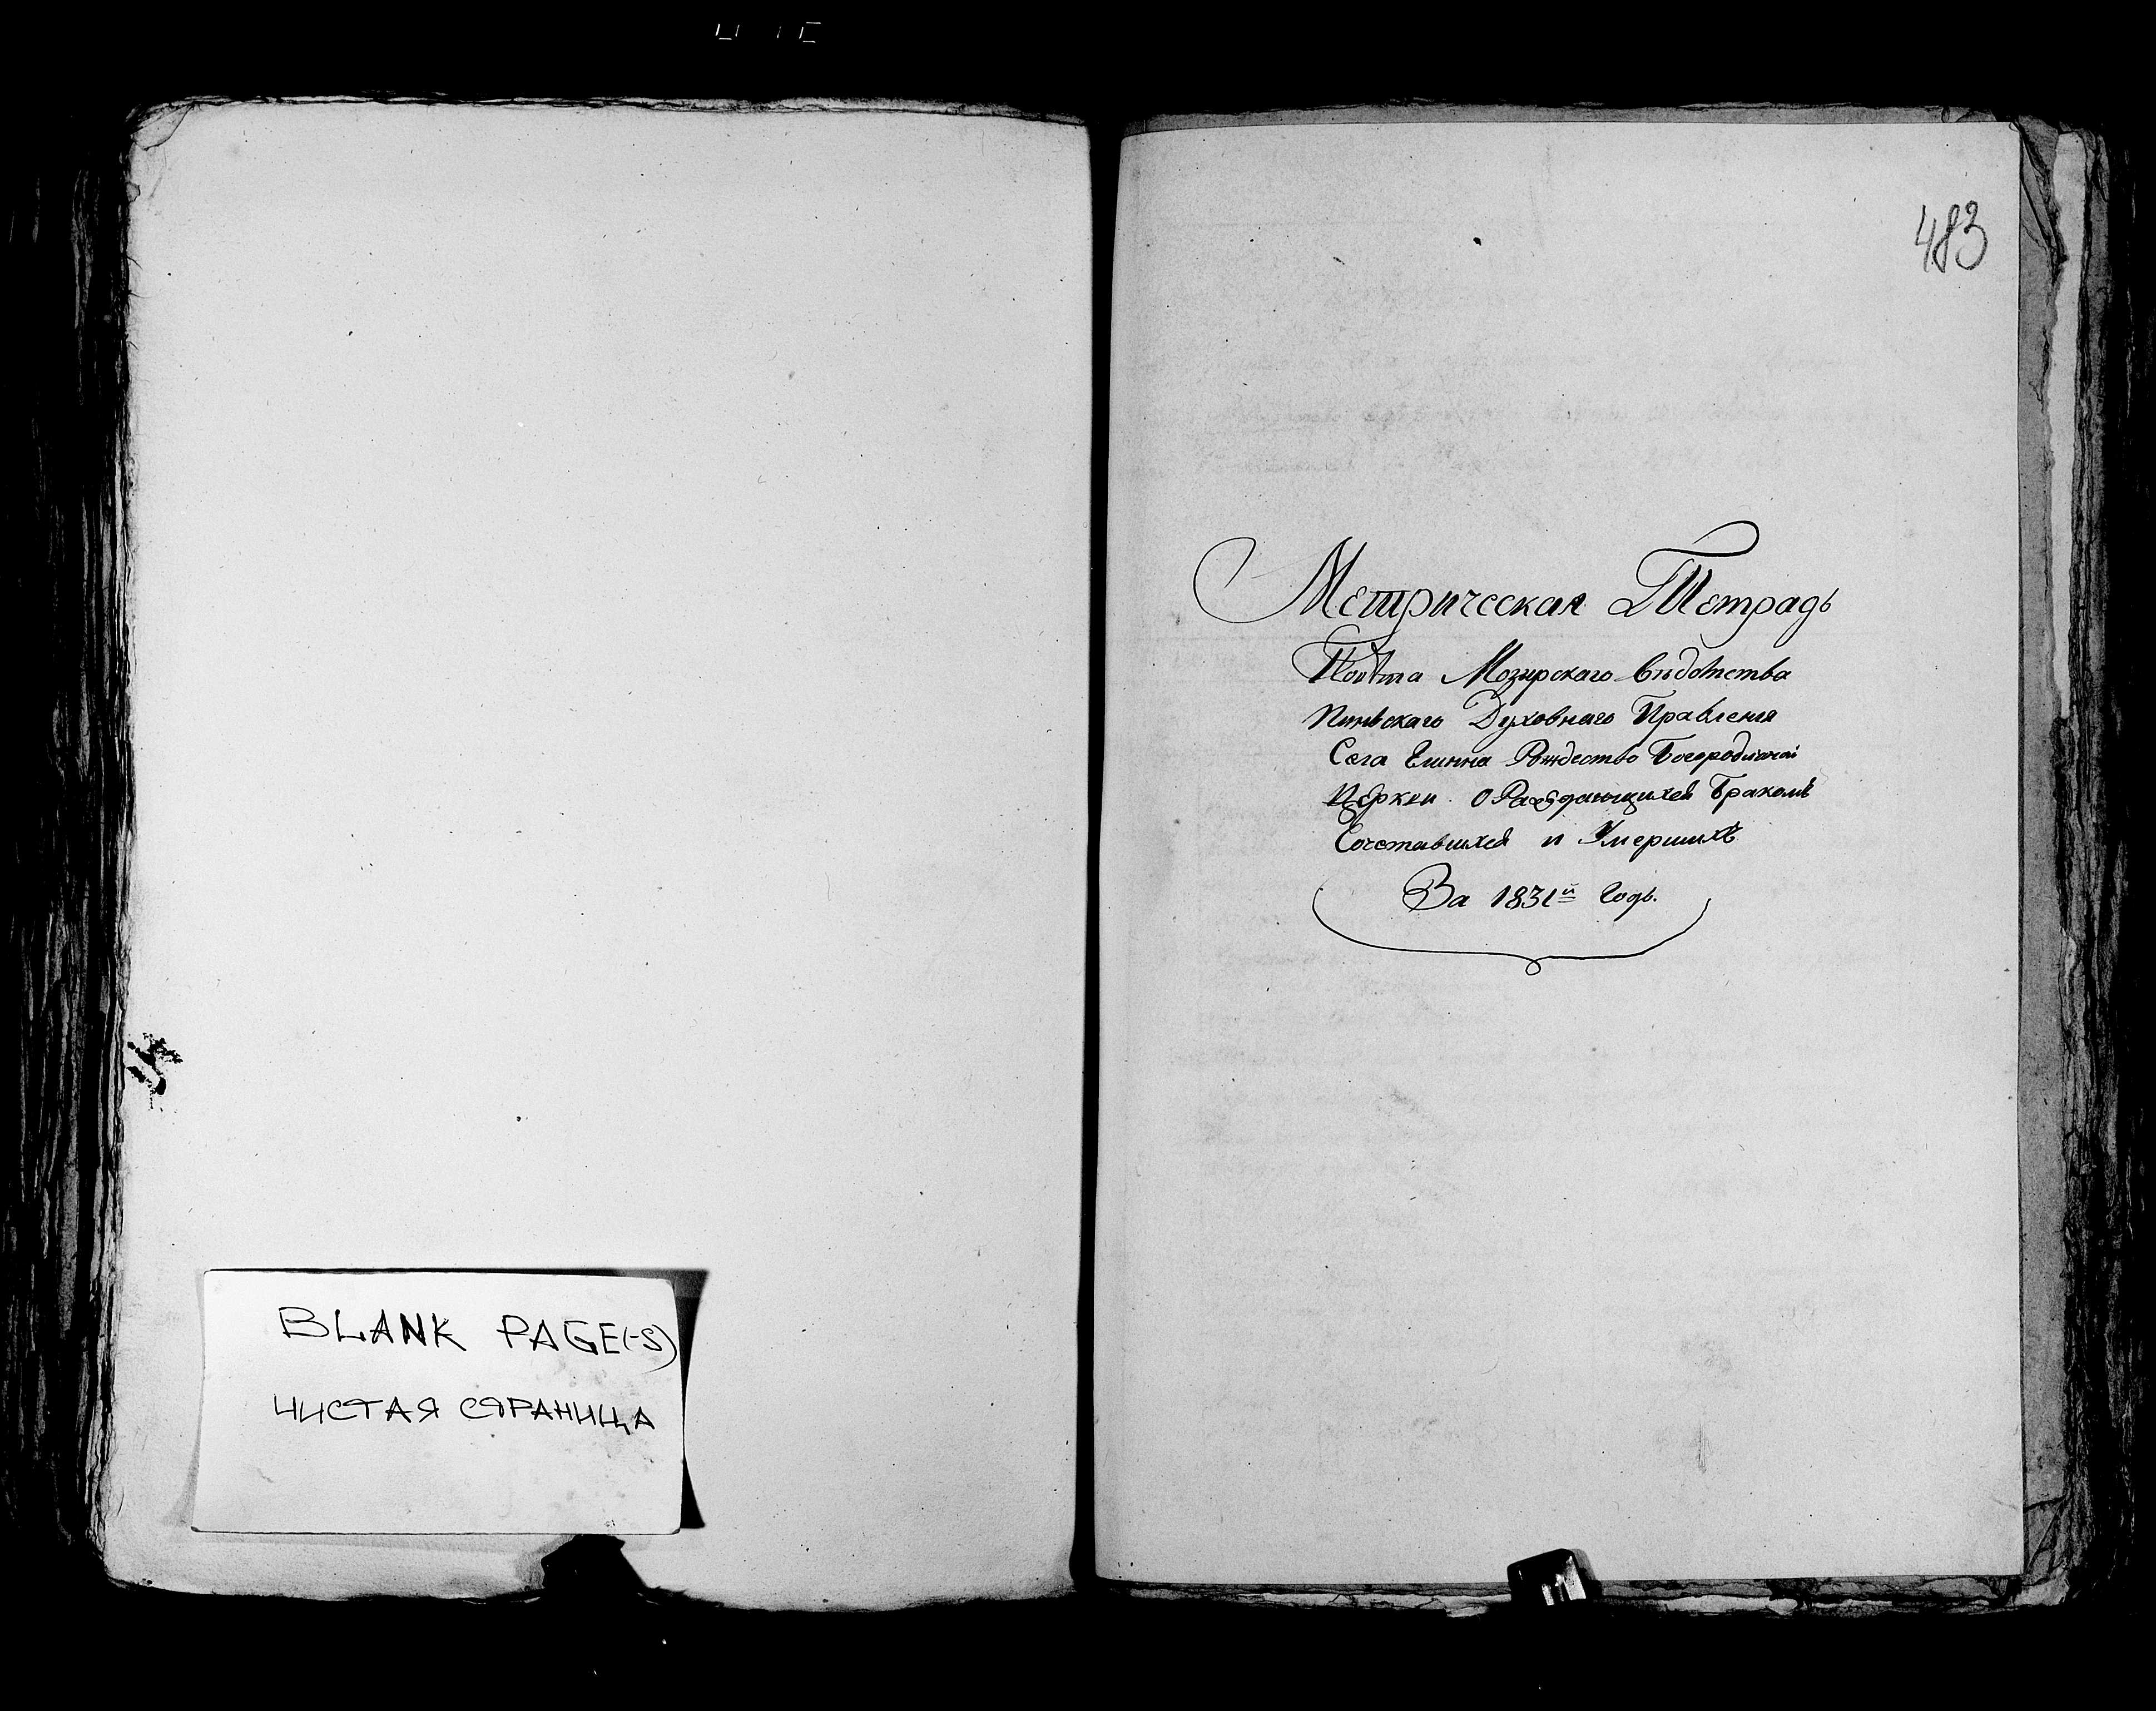 BLANK PAGE(-S)
ЧИСТАЯ СТРАНИЦА
483
Метрическая Тетрадь
Повѣта Мозирскаго вѣдомства
Пинскаго Духовнаго Правленія
Села Рождество Богородичной
Церкви О Раждающихся Бракомъ
Сочетавшихся и Умершихъ
За 1831й Годъ.